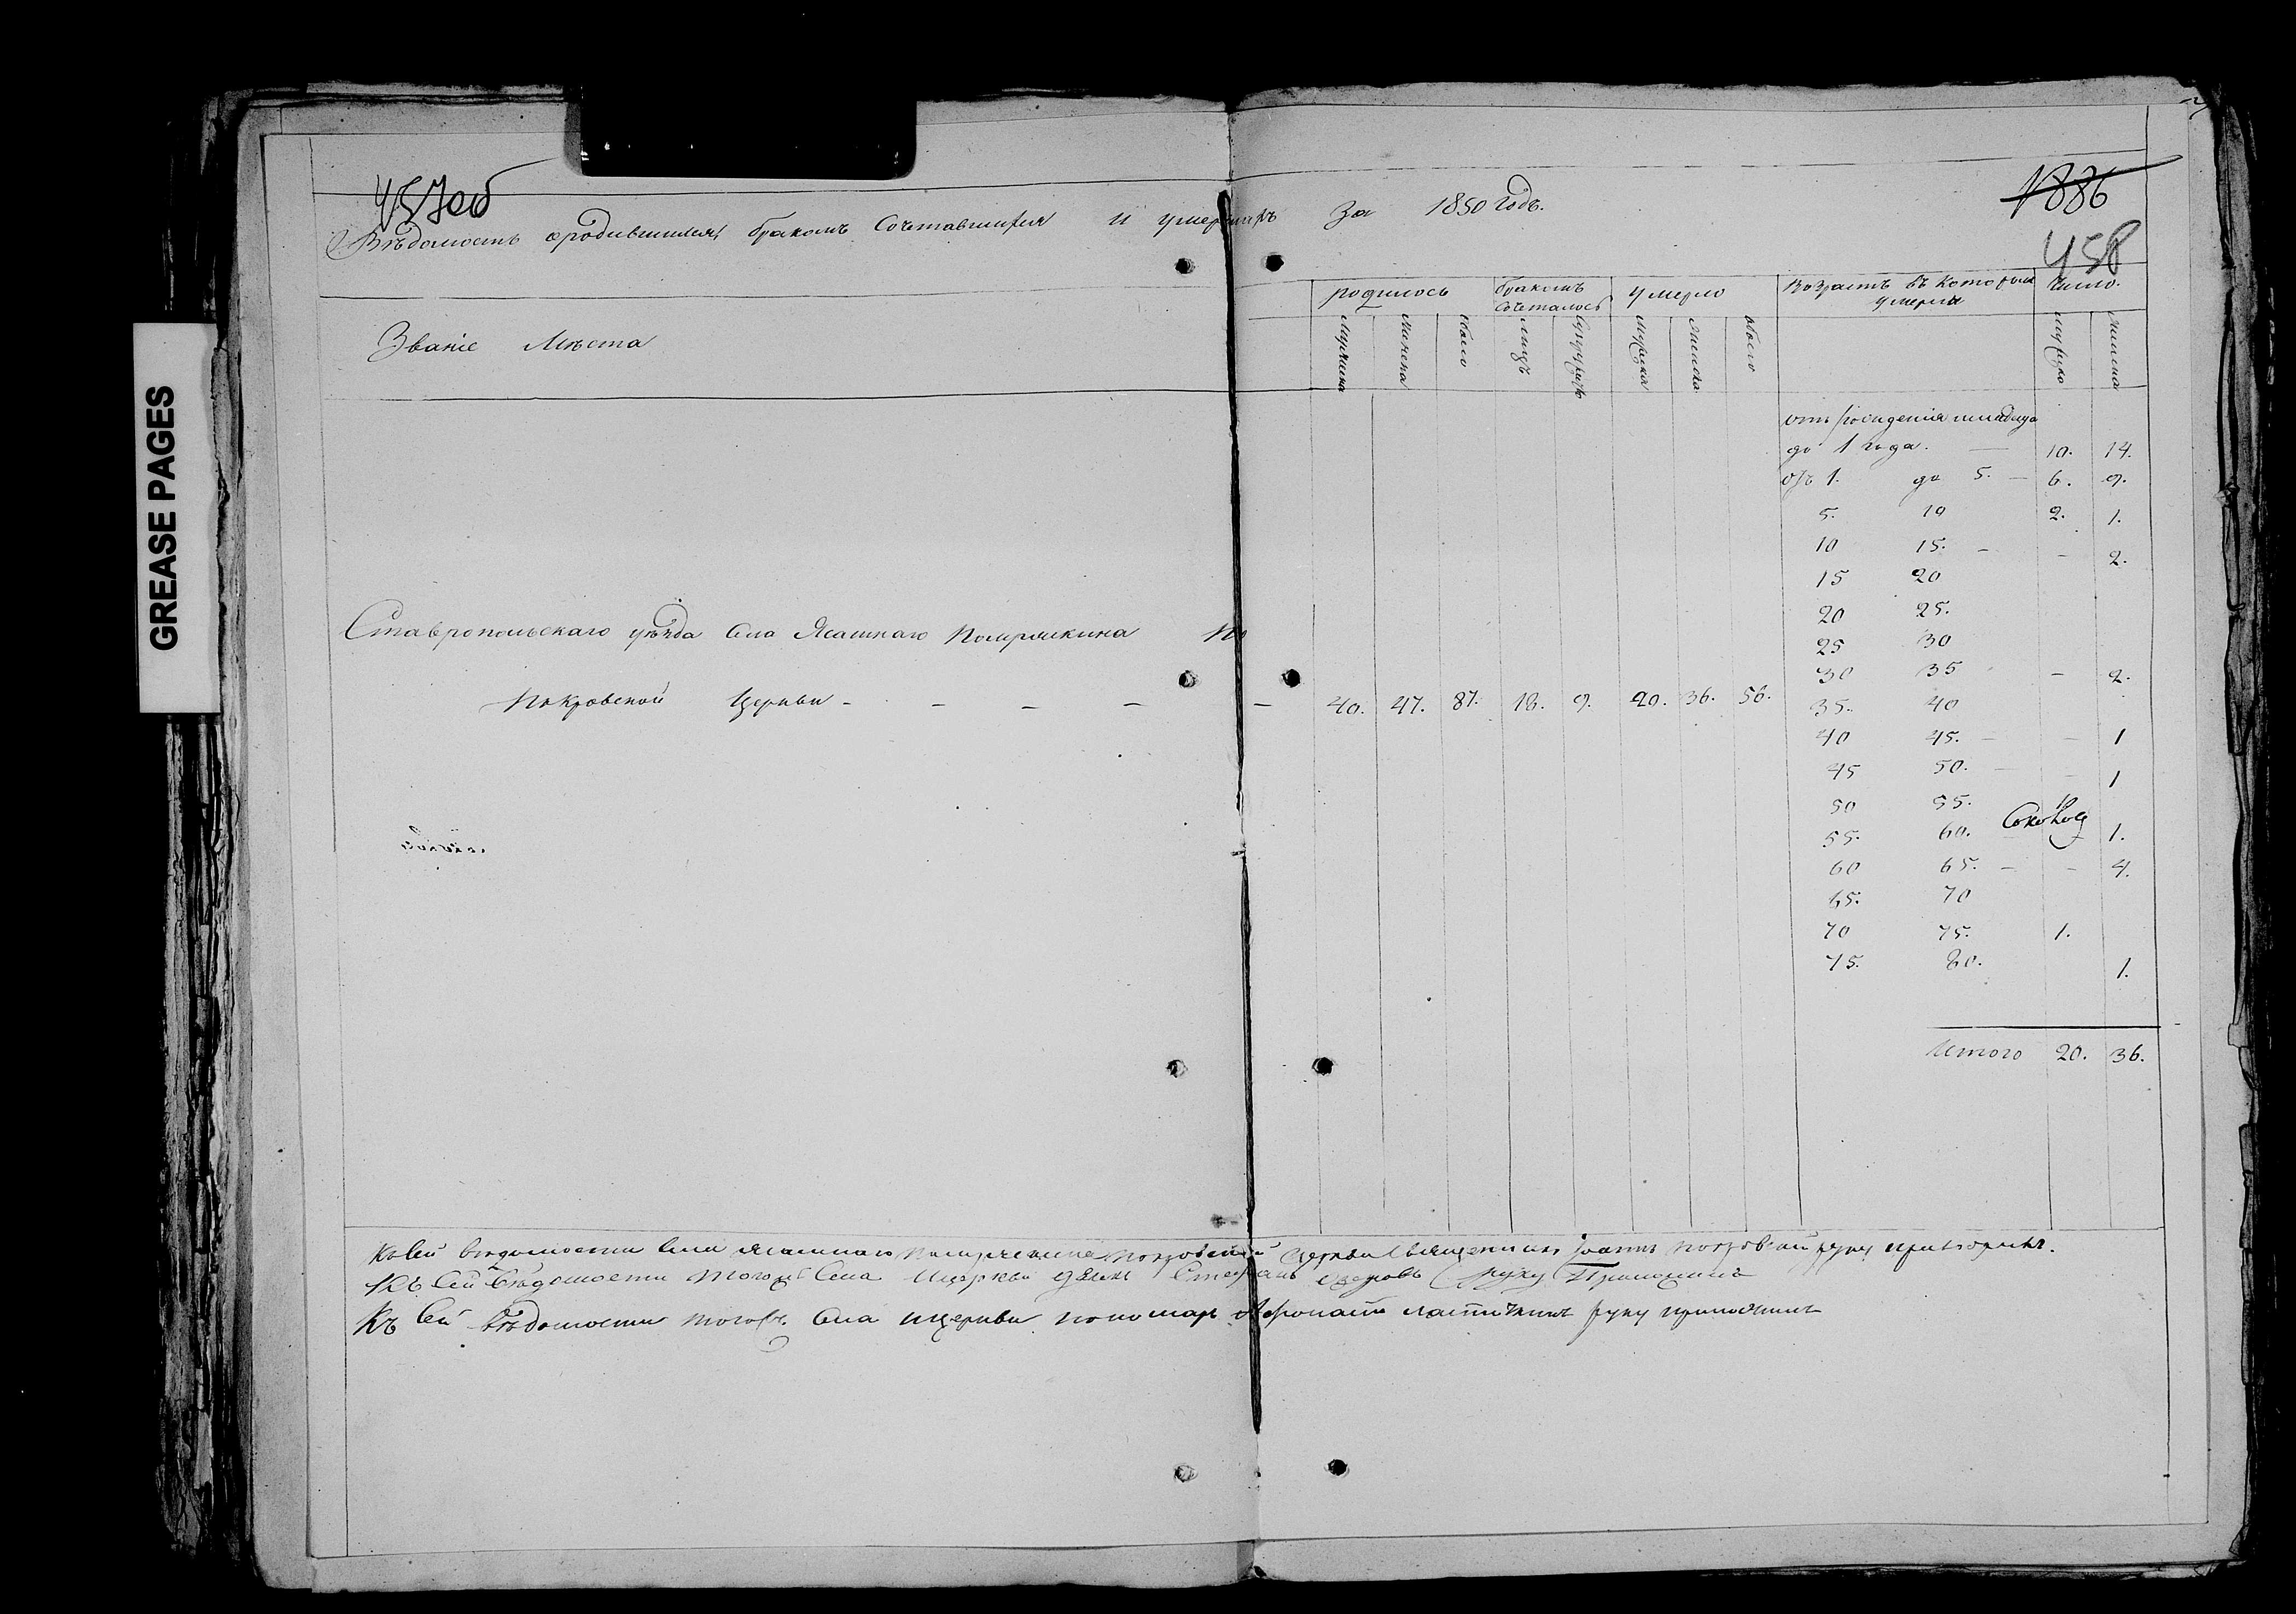 457об
1886
458
Вѣдомость о родившихся, бракомъ сочетавшихся и умершихъ за 1850 годъ.
Званіе Мѣста
родилось
бракомъ сочеталось
умерло
Возрастъ въ которомъ умерли
Число.
отъ рожденія младенца
до 1 года. — 10. 14.
отъ 1. до 5. — 6. 9.
5. 10 2. 1.
10 15. - - 2.
15 20
20 25.
25 30
Ставропольскаго уѣзда Села Ясашнаго Помряскина По
30 35 - 2.
Покровской Церкви - - - - - 40. 47. 87. 18. 9. 20. 36. 56.
35. 40
40 45. - - 1
45 50. - - 1
50 55.
55. 60. 1.
60 65. - - 4.
65. 70
70 75. 1.
75. 80. 1.
Итого 20. 36.
Къ сей вѣдомости села Ясашнаго Помряскина Покровской церкви священникъ Іоаннъ Покровский руку приложилъ.
Къ сей вѣдомости тогожъ Села и церкви Стефанъ руку Приложилъ
Къ сей вѣдомости тогожъ села и церкви пономарь руку приложилъ
GREASE PAGES